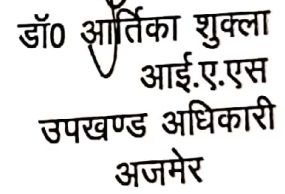 डॉ0 आर्तिका शुक्ला
आई.ए.एस
उपखण्ड अधिकारी
अजमेर